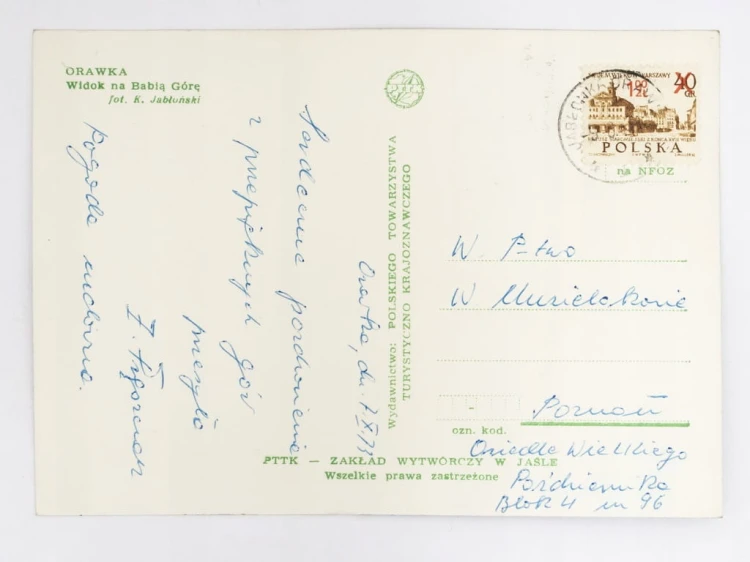 ORAWKA
Widok na Babią Górę
fot. K. Jabłoński
PTTK
Orawka, dn. 7 X 73
Serdeczne pozdrowienia
z przepięknych gór
przesyła
Pogoda cudowna.
Wydawnictwo: POLSKIEGO TOWARZYSTWA
TURYSTYCZNO KRAJOZNAWCZEGO
40
GR
1,50
ZŁ
POLSKA
na NFOZ
W. P-two
W Musielakowie
Poznań
ozn. kod.
Osiedle Wielkiego
Październike
Blok 4 m 96
PTTK — ZAKŁAD WYTWÓRCZY W JAŚLE
Wszelkie prawa zastrzeżone